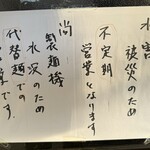 水害
被災のため
不定期
営業となります
尚
製麺機
水没のため
代替麺での
営業です。